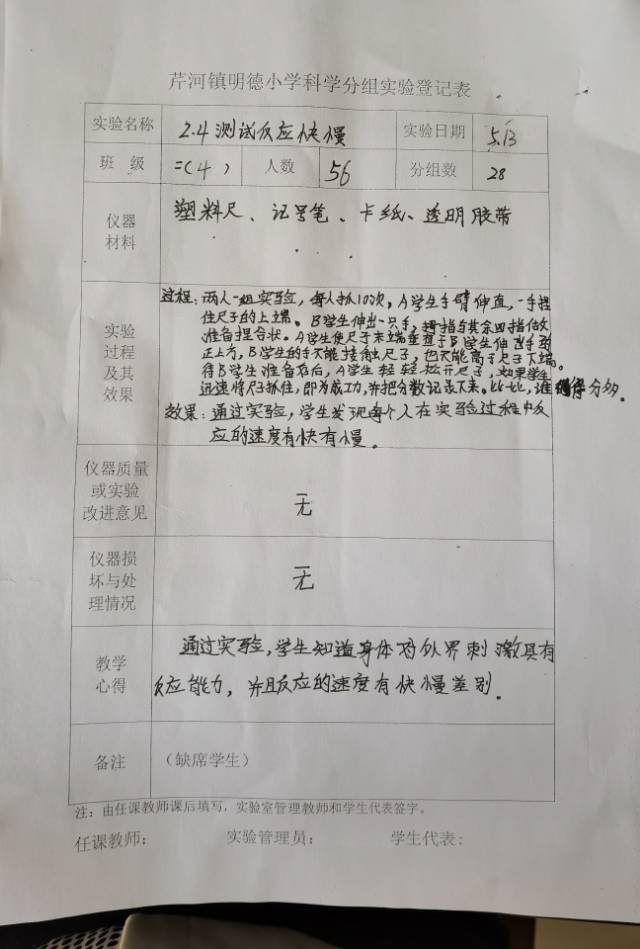 芹河镇明德小学科学分组实验登记表
实验名称 2.4 测试反应快慢 实验日期 5.13
班 级 二(4) 人数 56 分组数 28
仪器
材料
塑料尺、记号笔、卡纸、透明胶带
实验
过程
及其
效果
过程:两人一组实验,每人抓10次,A学生手臂伸直,一手捏
住尺子的上端。B学生伸出一只手,拇指与其余四指做
准备捏合状。A学生使尺子末端垂直于B学生伸出手的
正上方,B学生的手不能接触尺子,也不能高于尺子下端。
待B学生准备好后,A学生轻轻松开尺子,如果学生
迅速将尺子抓住,即为成功,并把分数记录下来。比一比,谁得分多。
效果:通过实验,学生发现每个人在实验过程中反
应的速度有快有慢。
仪器质量
或实验
改进意见
无
仪器损
坏与处
理情况
无
教学
心得
通过实验,学生知道身体对外界刺激具有
反应能力,并且反应的速度有快慢差别.
备注 (缺席学生)
注:由任课教师课后填写,实验室管理教师和学生代表签字。
任课教师: 实验管理员: 学生代表: